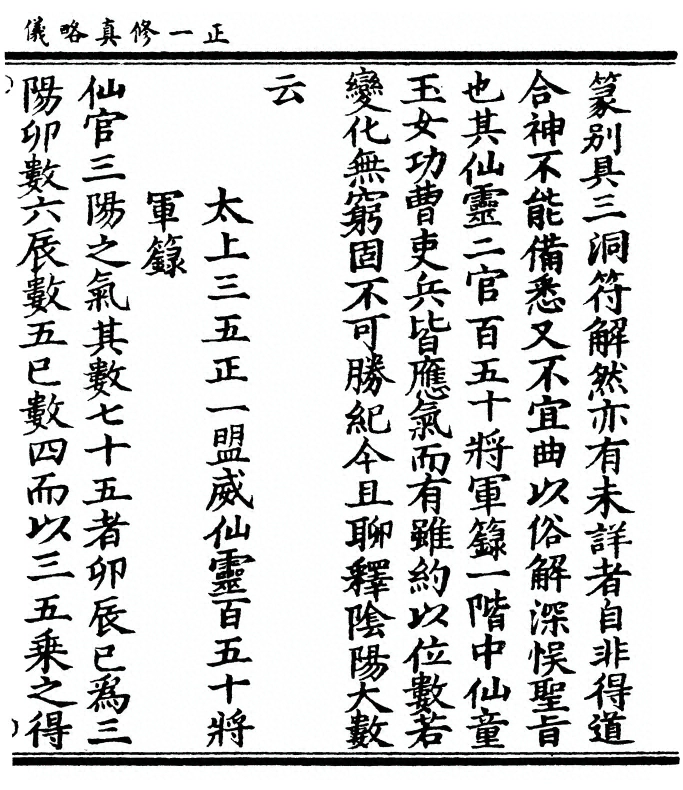 正一修真略儀
篆别具三洞符解然亦有未詳者自非得道
合神不能備悉又不宜曲以俗解深悮聖旨
也其仙靈二官百五十將軍籙一階中仙童
玉女功曹吏兵皆應氣而有雖約以位數若
變化無窮固不可勝紀今且聊釋陰陽大數
云
太上三五正一盟威仙靈百五十將
軍籙
仙官三陽之氣其數七十五者卯辰巳為三
陽卯數六辰數五巳數四而以三五乗之得